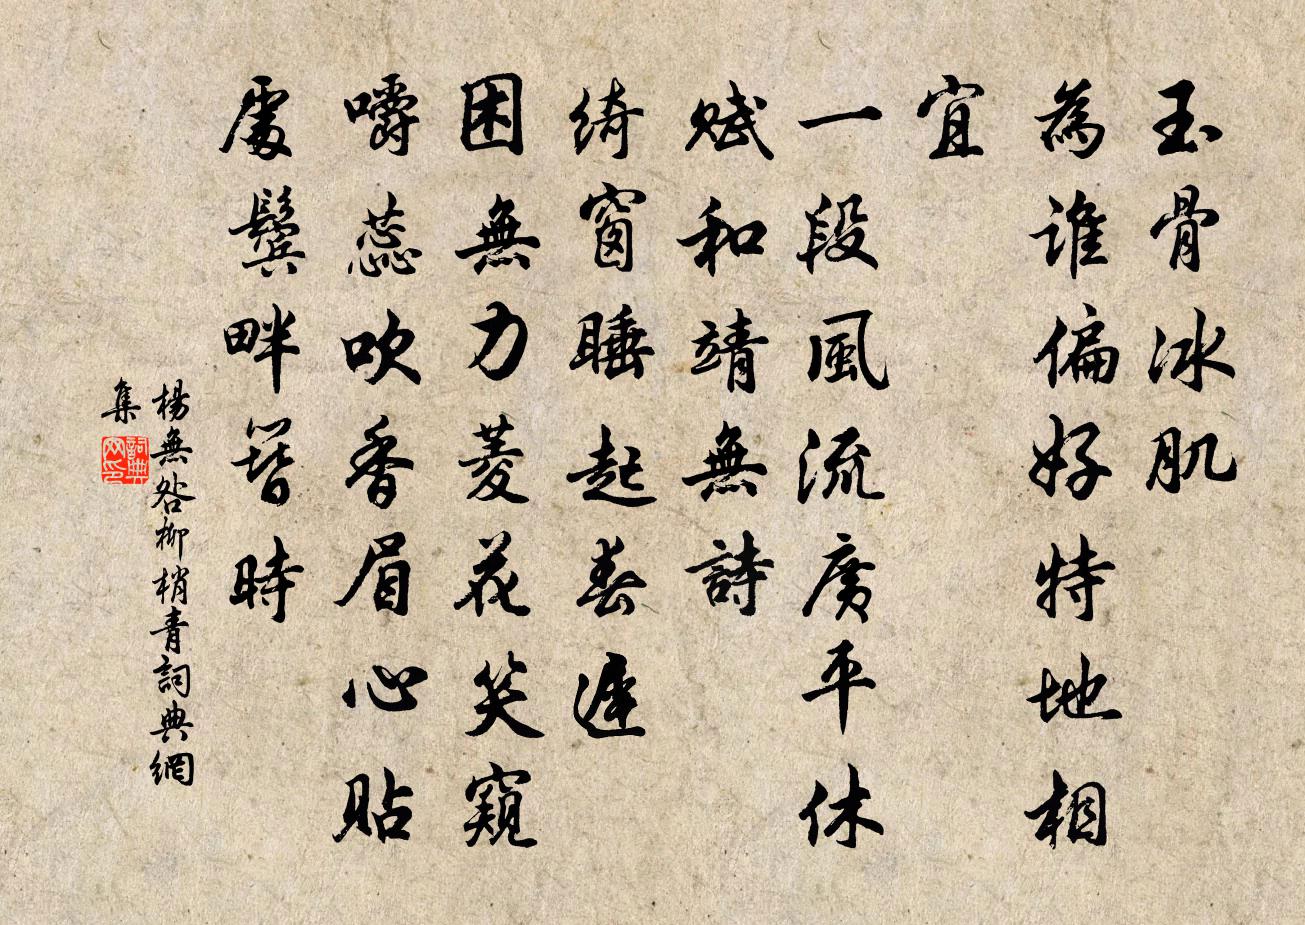 玉骨冰肌
為誰偏好特地相
宜
一段風流廣平休
賦和靖無詩
綺窗睡起春遲
困無力菱花笑窺
嚼蕊吹香眉心貼
處鬢畔簪時
楊無咎柳梢青詞典網
集
詞典
网印